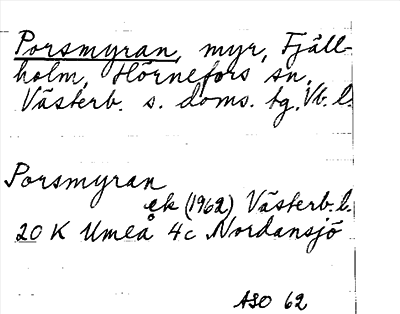 Porsmyran, myr, Fjäll-
holm, Hörnefors sn,
Västerb. s. doms. tg. Vb. l.
Porsmyran
ek (1962) Västerb. l.
20 K Umeå 4c Nordansjö
ASO 62